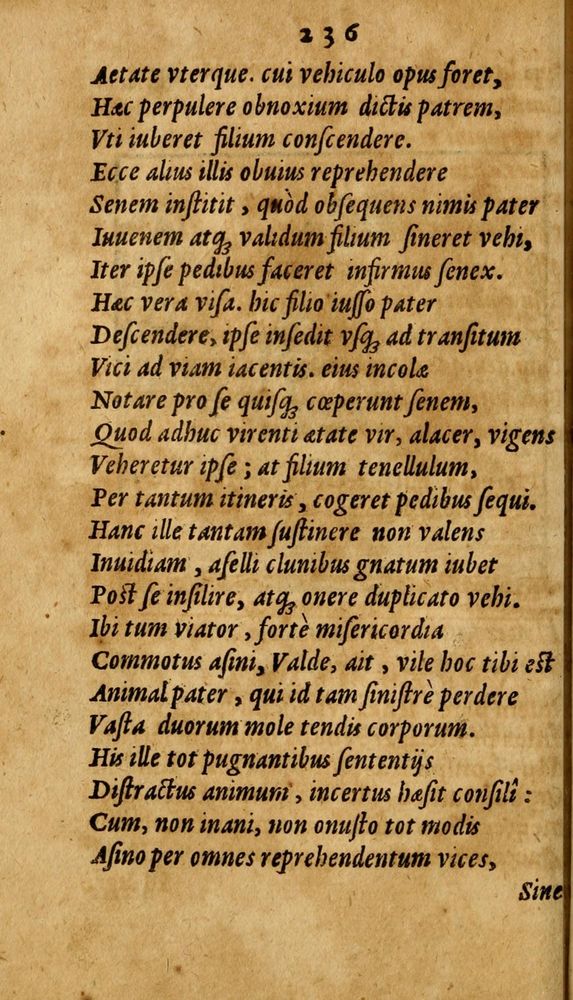 236
Aetate vterque. cui vehiculo opus foret,
Hæc perpulere obnoxium dictis patrem,
Vti iuberet filium conſcendere.
Ecce alius illis obuius reprehendere
Senem inſtitit, quòd obſequens nimis pater
Iuuenem atqꝫ validum filium ſineret vehi,
Iter ipſe pedibus faceret infirmus ſenex.
Hæc vera viſa. hic filio iuſſo pater
Deſcendere, ipſe inſedit vſqꝫ ad tranſitum
Vici ad viam iacentis. eius incolæ
Notare pro ſe quiſqꝫ cœperunt ſenem,
Quod adhuc virenti ætate vir, alacer, vigens
Veheretur ipſe; at filium tenellulum,
Per tantum itineris, cogeret pedibus ſequi.
Hanc ille tantam ſuſtinere non valens
Inuidiam, aſelli clunibus gnatum iubet
Poſt ſe inſilire, atqꝫ onere duplicato vehi.
Ibi tum viator, fortè miſericordia
Commotus aſini, Valde, ait, vile hoc tibi eſt
Animal pater, qui id tam ſiniſtrè perdere
Vaſta duorum mole tendis corporum.
His ille tot pugnantibus ſententijs
Diſtractus animum, incertus hæſit conſilî:
Cum, non inani, non onuſto tot modis
Aſino per omnes reprehendentum vices,
Sine